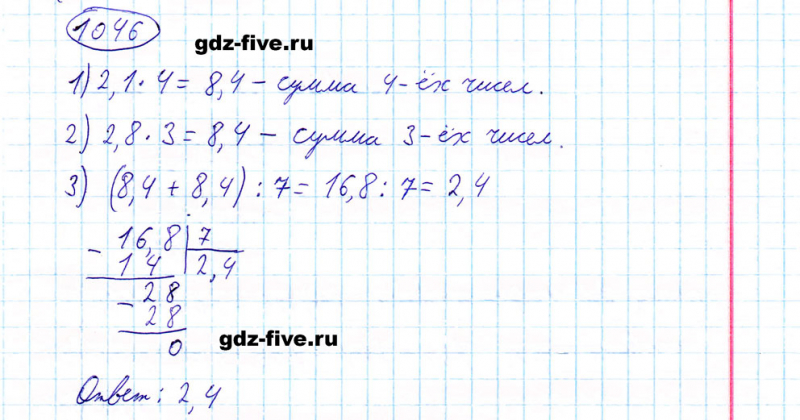 1046
gdz-five.ru
1) 2,1 · 4 = 8,4 – сумма 4-ёх чисел.
2) 2,8 · 3 = 8,4 – сумма 3-ёх чисел.
3) (8,4 + 8,4) : 7 = 16,8 : 7 = 2,4
– 16,8 | 7
14 | 2,4
– 28
28
0
gdz-five.ru
Ответ: 2,4